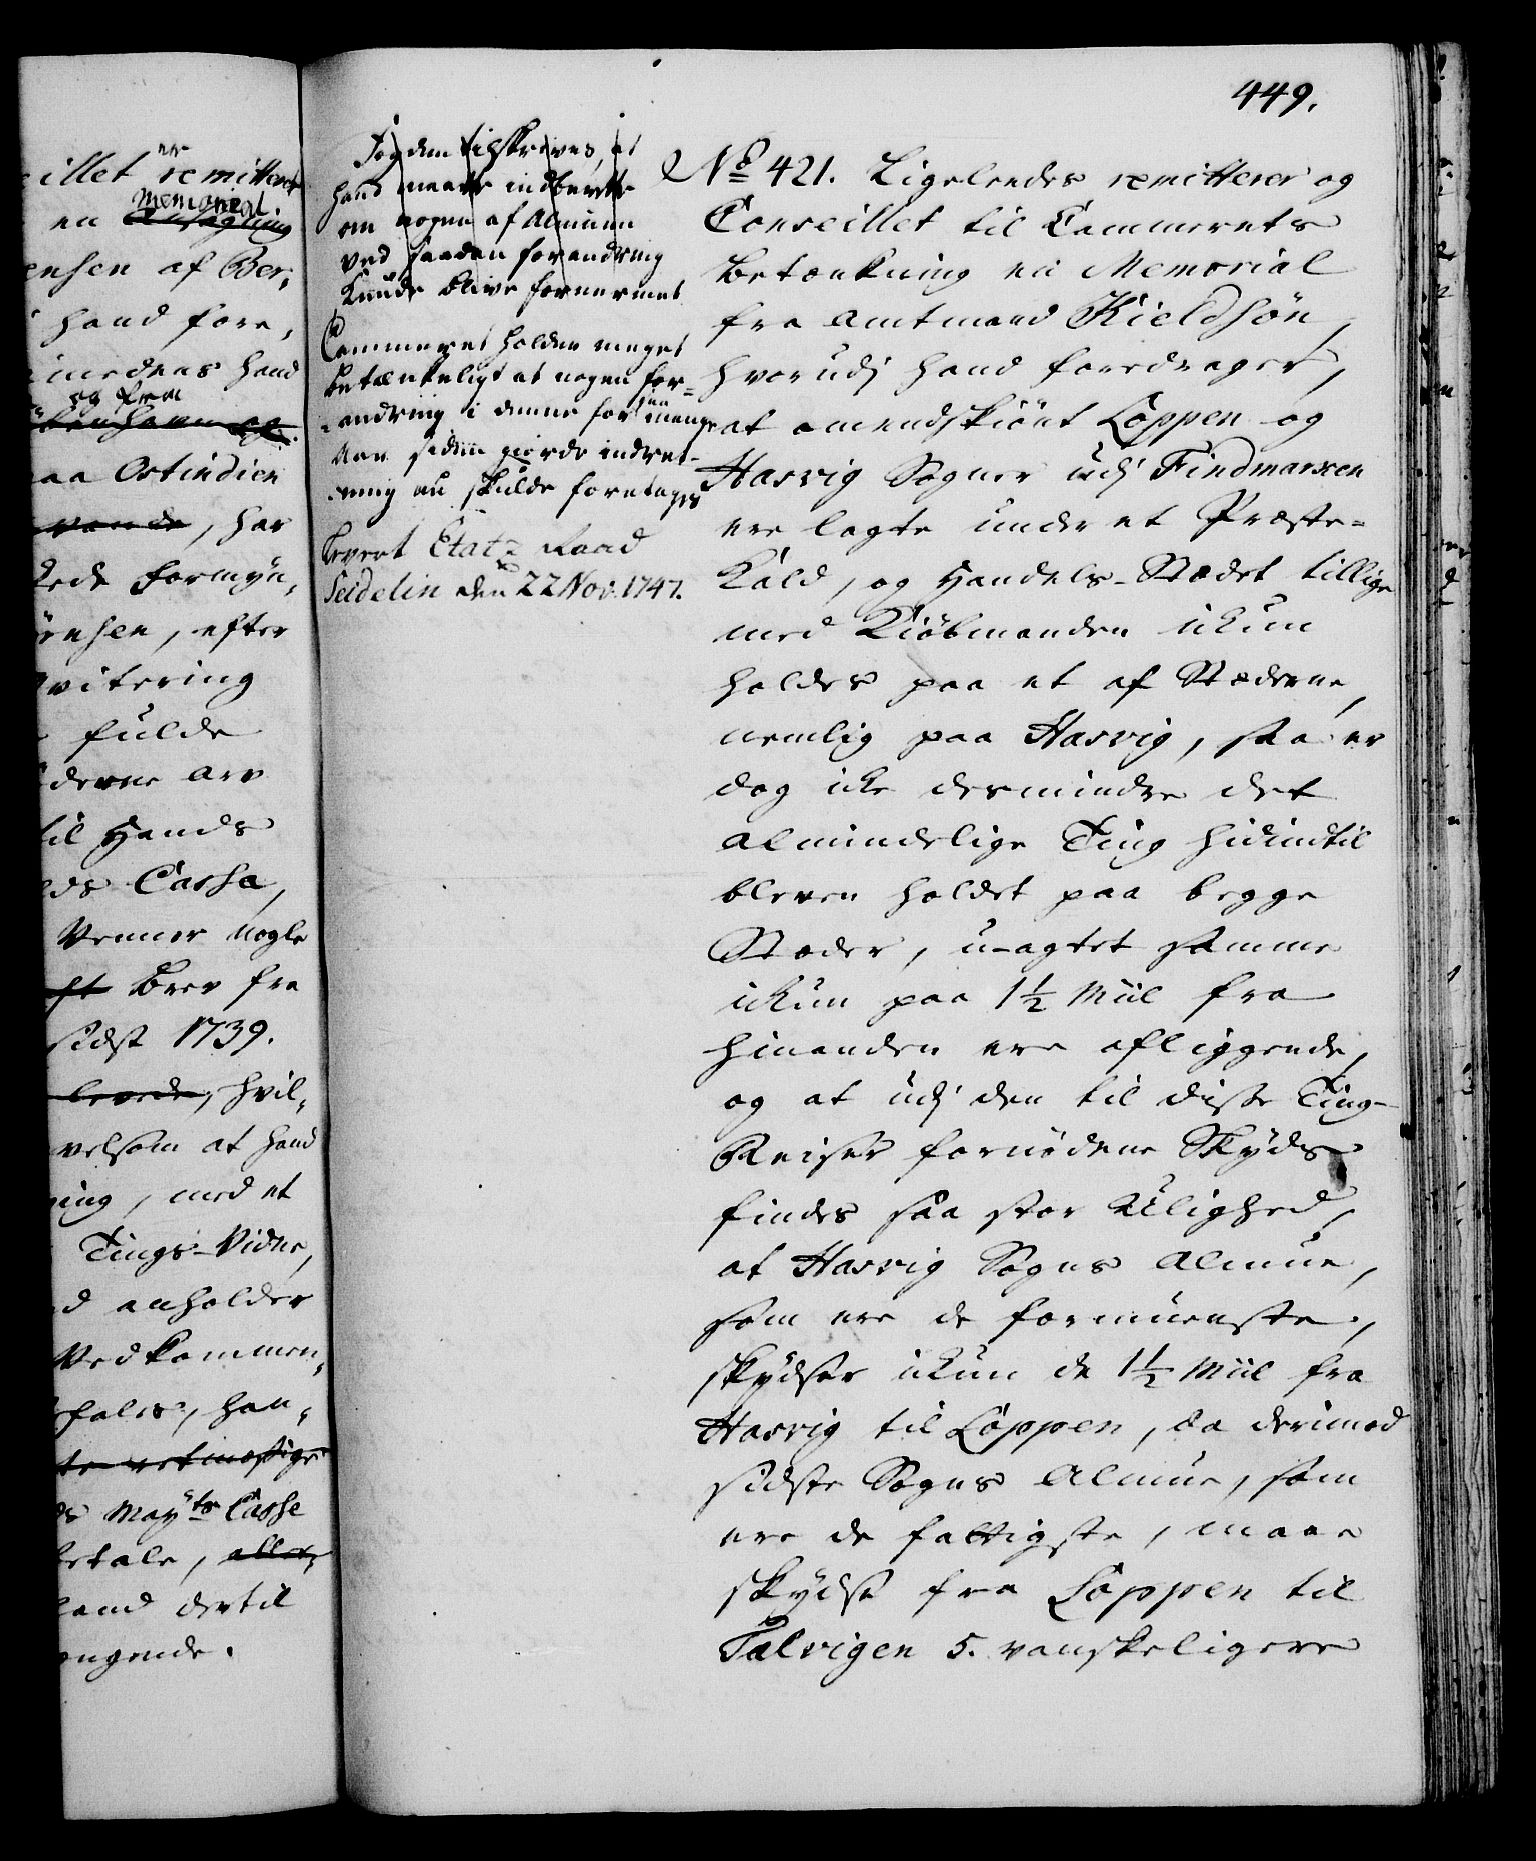 449.
illet er remitteret
en Ansøgning Memorial.
ensen af Ber,
hand fore,
imedens hand
og fra
paa Ostindien
, har
formyn,
ensen, efter
qvitering
fulde
derne arv
til Hands
Cassa,
Venner nogle
Brev fra
sidst 1739.
levede, hvil,
velsom at hand
ning, med et
Tings-Vidne,
anholder
Vedkommen,
fales, han,
retmæssige
May:ts Casse
betale, aller,
dertil
engende.
Fogden tilskrives, at
hand maatte indberette
om nogen af Almuen
ved saadan forandring
Kunde blive fornærmet
Cammeret holder meget
betænkeligt at nogen for=
andring i denne for saa mange
Aar siden giorde indret-
ning nu skulde foretages
Levert Etatz Raad
Seidelin den 22 Nov. 1747.
No 421. Ligeledes remitterer og
Conseillet til Cammerets
betænkning en Memorial
fra Amtmand Kieldsøn,
hvorudj hand foredrager,
at omendskiönt Loppen og
Hasvig Sogner udj Findmarken
ere lagte under et Præste=
Kald, og Handels-Stædet tillige
med Kiöbmanden ikun
holdes paa et af Stæderne,
nemlig paa Hasvig, saa er
dog icke desmindre det
almindelige Ting hidindtil
bleven holdet paa begge
Stæder, u-agtet samme
ikun paa 1½ Miil fra
hinanden ere afliggende,
og at udj den til disse Ting-
Reiser fornödene Skyds
findes saa stor Ulighed,
at Hasvig Sogns Almue,
som ere de formuenste,
skydser ikun de 1½ Miil fra
Hasvig til Loppen, da derimod
sidste Sogns Almue, som
ere de fattigste, maae
skydse fra Loppen til
Talvigen 5. vanskeligere